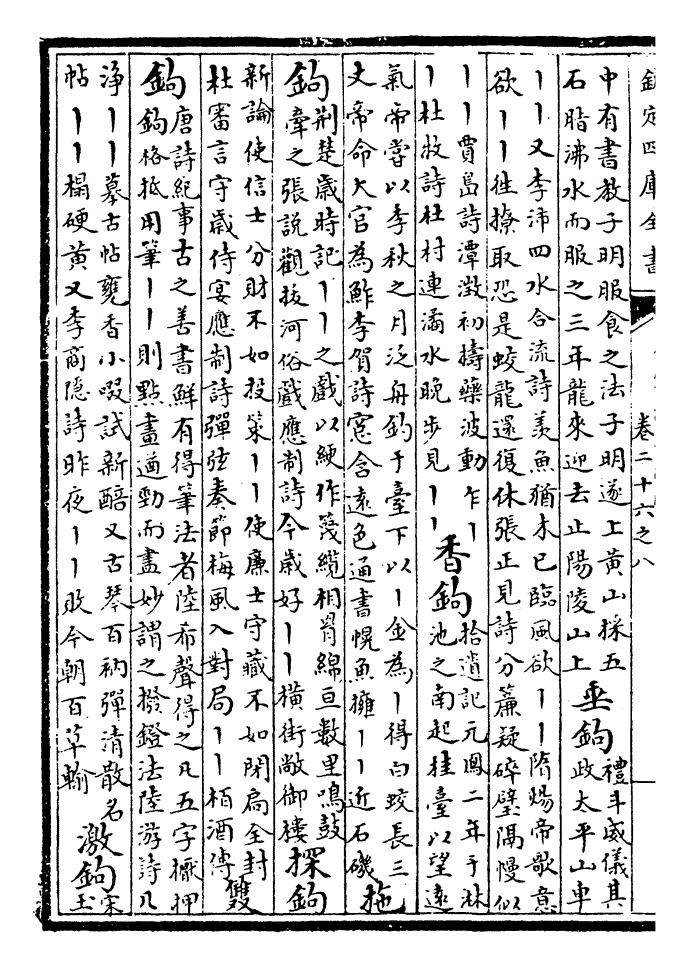 欽定四庫全書
卷二十六之八
中有書教子明服食之法子明遂上黃山採五
石脂沸水而服之三年龍來迎去止陽陵山上
垂鉤
禮斗威儀其
政太平山車
丨丨又李沛四水合流詩羨魚猶未已臨風欲丨丨隋煬帝歌意
欲丨丨徃撩取恐是蛟龍還復休張正見詩分簾疑碎璧隔幔似
丨丨賈島詩潭澂初擣藥波動乍丨
丨杜牧詩杜村連潏水晚步見丨丨
香鉤
拾遺記元鳳二年于淋
池之南起桂臺以望遠
氣帝嘗以季秋之月泛舟釣于臺下以丨金為丨得白蛟長三
丈帝命大官為鮓李賀詩窓含遠色通書幌魚擁丨丨近石磯
拖
鉤
荆楚歲時記丨丨之戲以綆作篾纜相罥綿亘數里鳴鼓
牽之張說觀拔河俗戲應制詩今歲好丨丨橫街敞御樓
探鉤
新論使信士分財不如投策丨丨使廉士守藏不如閉扃全封
杜審言守歲侍宴應制詩彈弦奏節梅風入對局丨丨栢酒傳
雙
鉤
唐詩紀事古之善書鮮有得筆法者陸希聲得之凡五字擫押
鉤格抵用筆丨丨則點畫遒勁而盡妙謂之撥鐙法陸游詩几
淨丨丨摹古帖甕香小啜試新醅又古琴百衲彈清散名
帖丨丨榻硬黃又李商隱詩昨夜丨丨敗今朝百草輸
激鉤
宋
玉